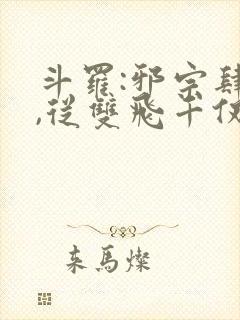 斗羅:邪宗肆
,從雙飛千仞
来馬燦